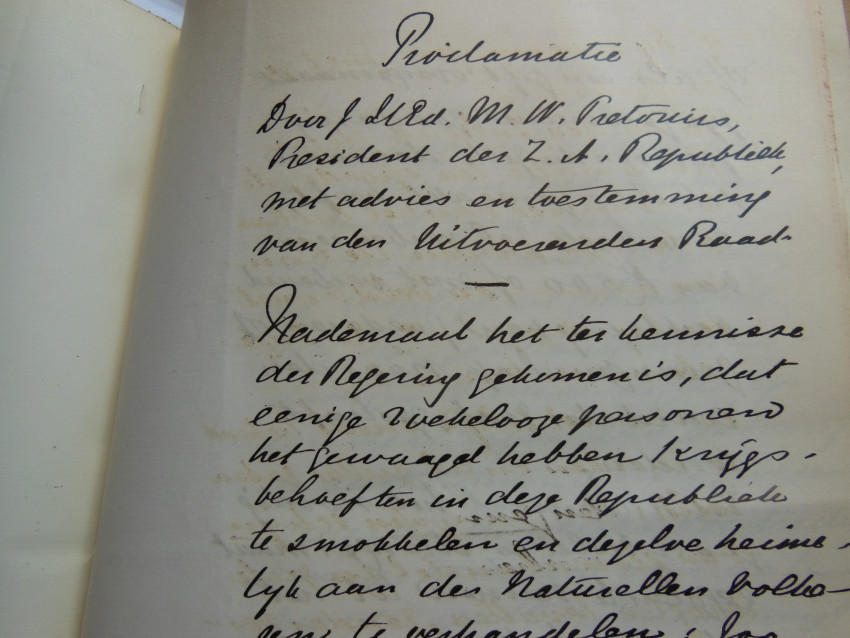 Proclamatie
Door Z HEd. M. W. Pretorius,
President der Z. A. Republiek,
met advies en toestemming
van den Uitvoerenden Raad.
—
Nademaal het ter kennisse
der Regering gekomen is, dat
eenige roekelooze personen
het gewaagd hebben Krijgs-
behoeften in deze Republiek
te smokkelen en dezelve heime-
lijk aan der Naturellen Volke-
te verhandelen; Zoo